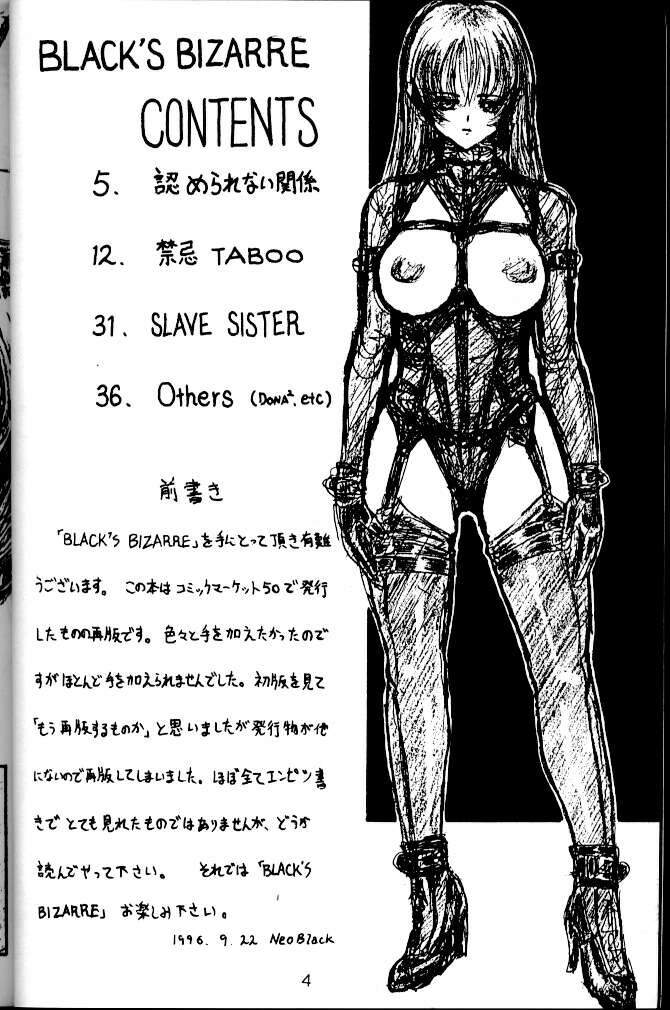 BLACK'S BIZARRE
CONTENTS
5. 認められない関係
12. 禁忌 TABOO
31. SLAVE SISTER
36. Others (DONA², etc)
前書き
「BLACK'S BIZARRE」を手にとって頂き有難
うございます。この本はコミックマーケット50で発行
したものの再版です。色々と手を加えたかったので
すがほとんど手を加えられませんでした。初版を見て
「もう再版するものか」と思いましたが発行物が他
にないので再版してしまいました。ほぼ全てエンピツ書
きでとても見れたものではありませんが、どうか
読んでやって下さい。 それでは「BLACK'S
BIZARRE」お楽しみ下さい。
1996. 9. 22 NeoBlack
4